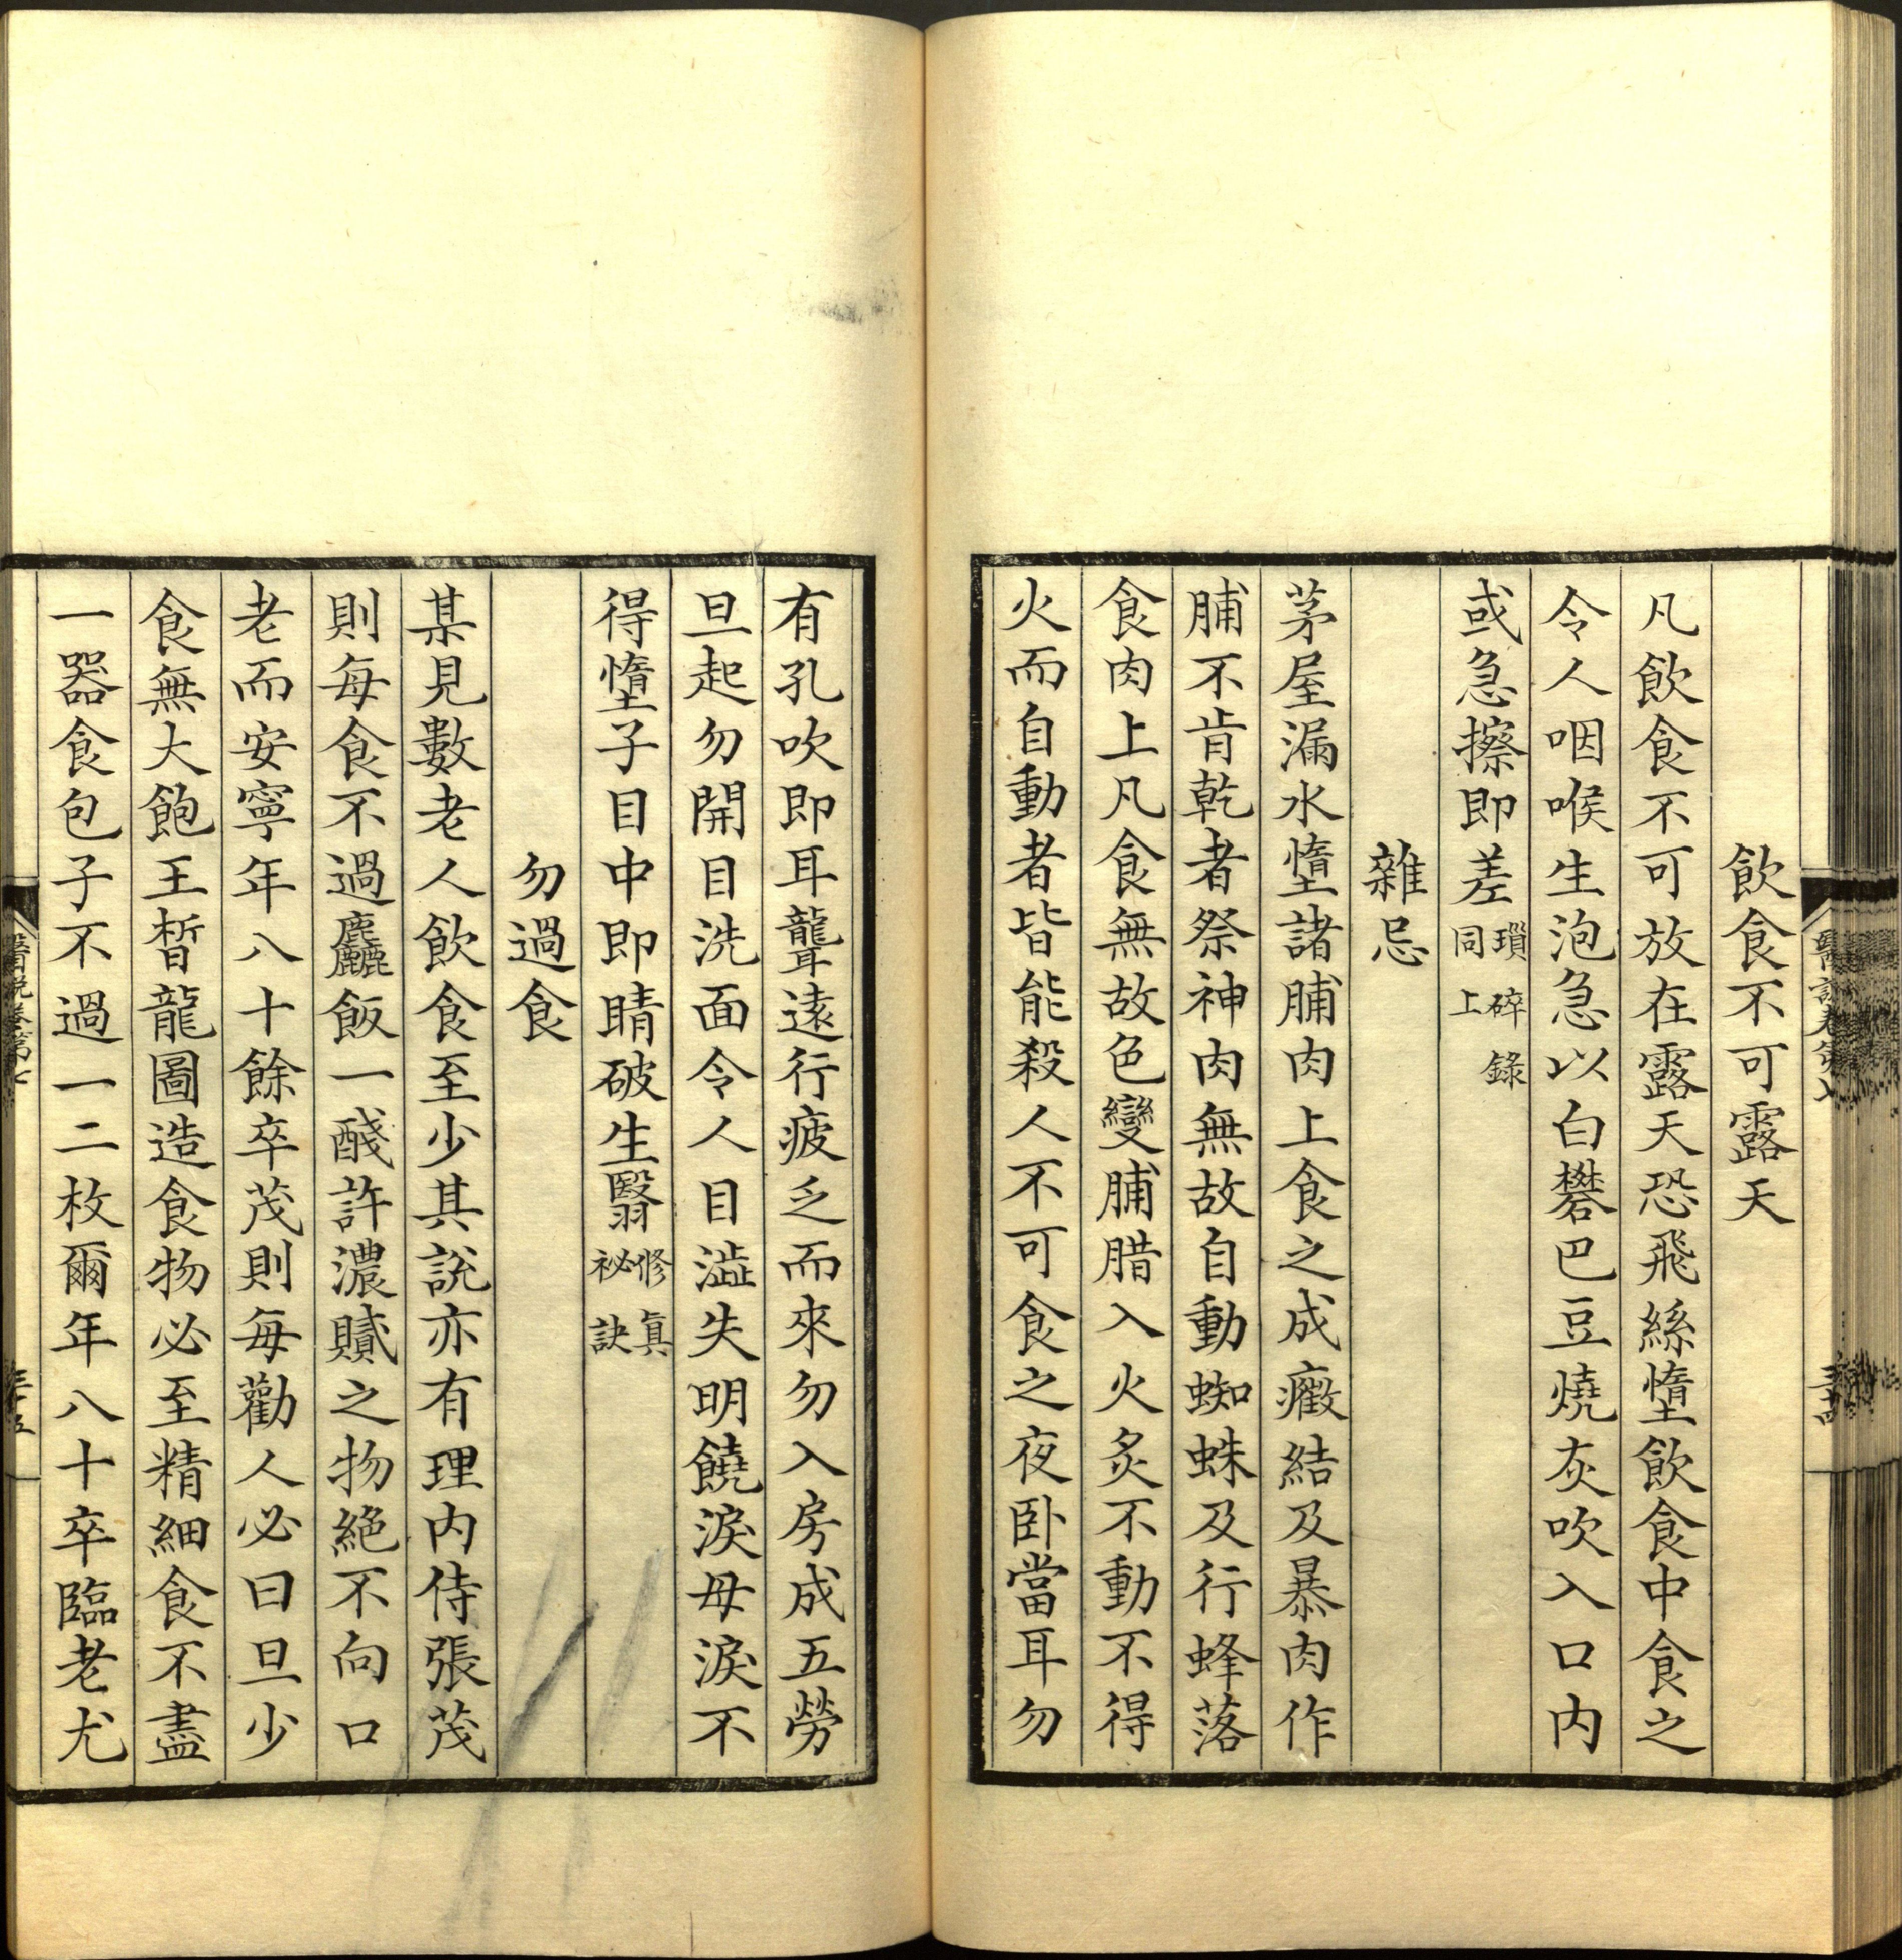 飲食不可露天
凡飲食不可放在露天恐飛絲墮飲食中食之
令人咽喉生泡急以白礬巴豆燒灰吹入口内
或急擦即差瑣碎錄同上
雜忌
茅屋漏水墮諸脯肉上食之成癥結及暴肉作
脯不肯乾者祭神肉無故自動蜘蛛及行蜂落
食肉上凡食無故色變脯腊入火炙不動不得
火而自動者皆能殺人不可食之夜卧當耳勿
有孔吹即耳聾遠行疲乏而來勿入房成五勞
旦起勿開目洗面令人目澁失明饒淚母淚不
得墮子目中即睛破生翳修真祕訣
勿過食
某見數老人飲食至少其説亦有理内侍張茂
則每食不過麤飯一醆許濃膩之物絶不向口
老而安寧年八十餘卒茂則每勸人必曰旦少
食無大飽王晳龍圖造食物必至精細食不盡
一器食包子不過一二枚爾年八十卒臨老尤
醫説卷第七
三十五